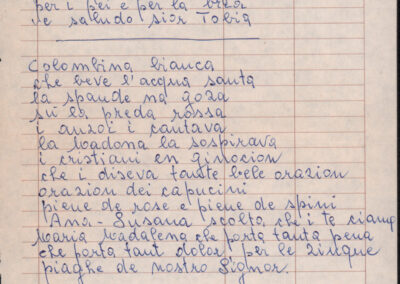 per i pei e per la
ve saludo sior Tobia
Colombina bianca
che beve l'acqua santa
la spande na goza
su la preda rossa
i anzoi i cantava
la Madona la sospirava
i cristiani en ginocion
che i diseva tante bele orazion
orazion dei capucini
piene de rose e piene de spini
Ana-Susana scolta che i te ciama
Maria Madalena che porta tanta pena
che porta tant dolor per le zinque
piaghe de nostro Signor.